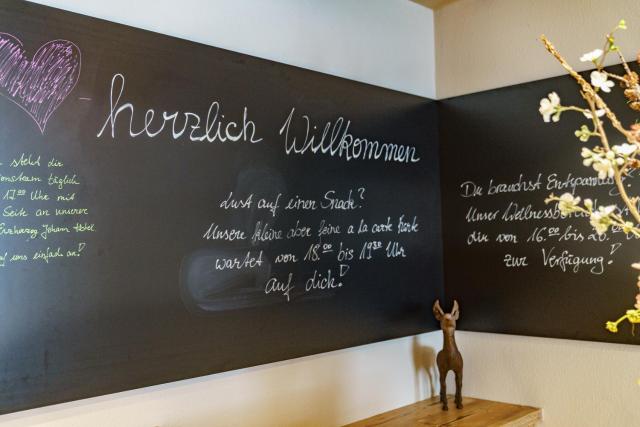 herzlich Willkommen
steht dir
täglich
17⁰⁰ Uhr mit
Seite an unserer
Erzherzog Johann Hotel
uns einfach an!
Lust auf einen Snack?
Unsere kleine aber feine a la carte Karte
wartet von 18.⁰⁰ bis 19³⁰ Uhr
auf dich!
Du brauchst
Unser
dir von 16.⁰⁰ bis
zur Verfügung!